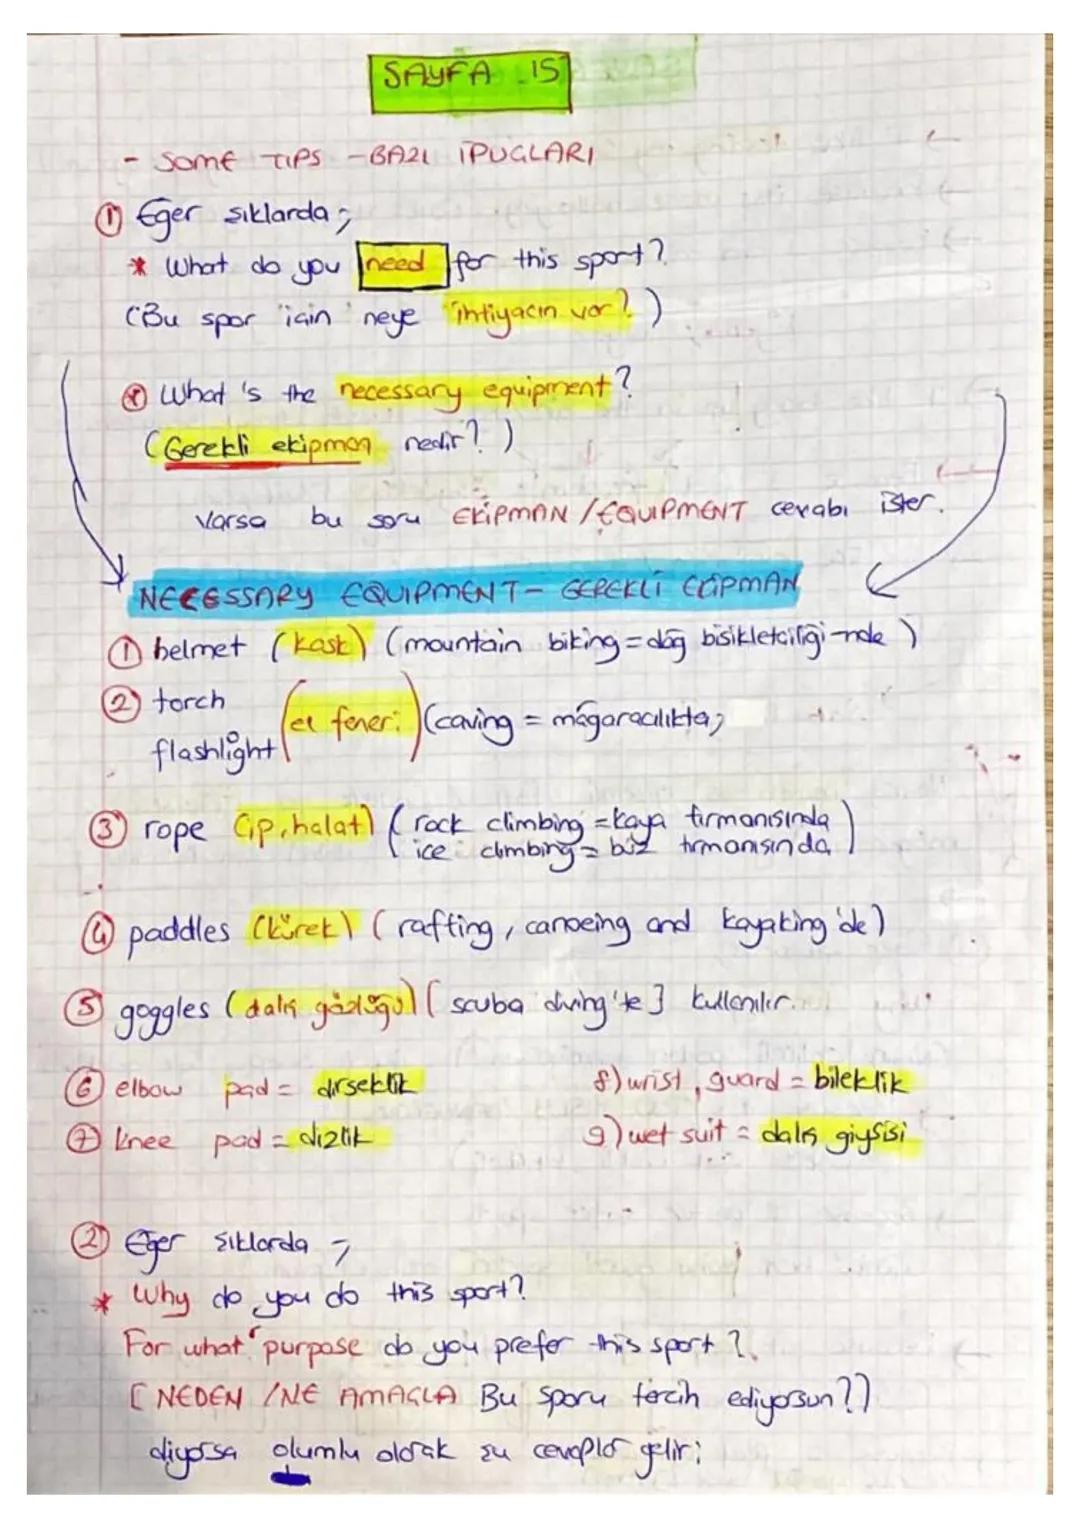 SAYFA 15
- SOME TIPS - BAZI İPUÇLARI
① Eğer şıklarda;
* What do you need for this sport?
(Bu spor için neye ihtiyacın var?)
* What's the necessary equipment?
(Gerekli ekipman nedir?)
Varsa bu soru EKİPMAN / EQUIPMENT cevabı ister.
NECESSARY EQUIPMENT - GEREKLİ EKİPMAN
① helmet (kask) (mountain biking = dağ bisikletçiliği-nde)
② torch
flashlight (el feneri) (caving = mağaracılıkta)
③ rope (ip, halat) (rock climbing = kaya tırmanışında
ice climbing = buz tırmanışında)
④ paddles (kürek) (rafting, canoeing and kayaking'de)
⑤ goggles (dalış gözlüğü) [scuba diving'te] kullanılır.
⑥ elbow pad = dirseklik 8) wrist, guard = bileklik
⑦ knee pad = dizlik 9) wet suit = dalış giysisi
② Eğer şıklarda;
* Why do you do this sport?
For what purpose do you prefer this sport?
[NEDEN / NE AMAÇLA Bu sporu tercih ediyorsun?]
diyorsa olumlu olarak şu cevaplar gelir;